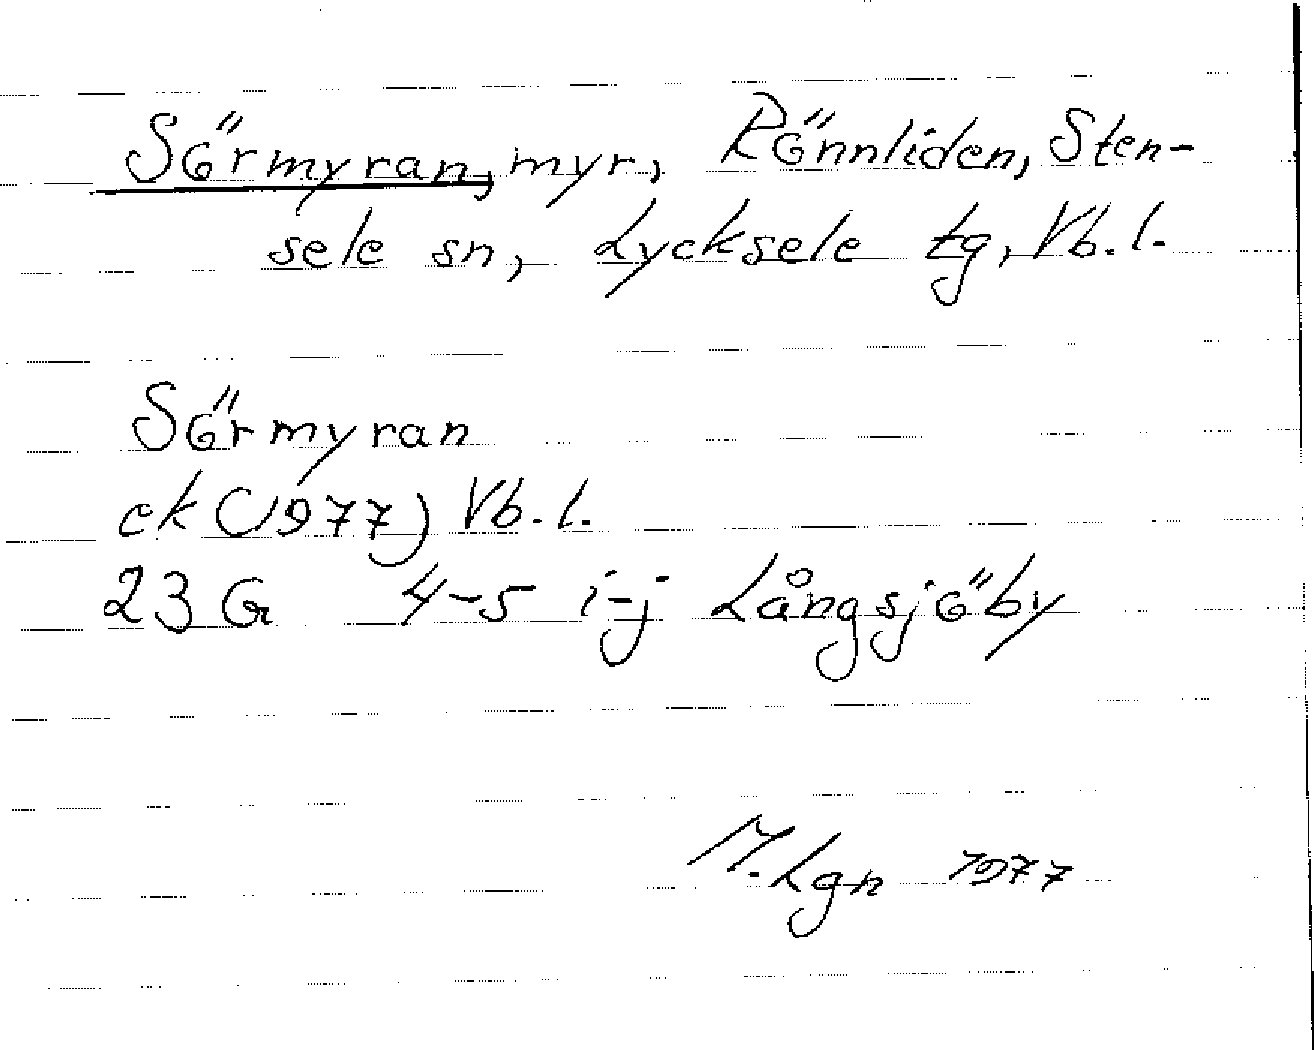 Sörmyran, myr, Rönnliden, Sten-
sele sn, Lycksele tg, Vb. l.
Sörmyran
ek (1977) Vb. l.
23 G 4-5 i-j Långsjöby
M. Lgn 1977